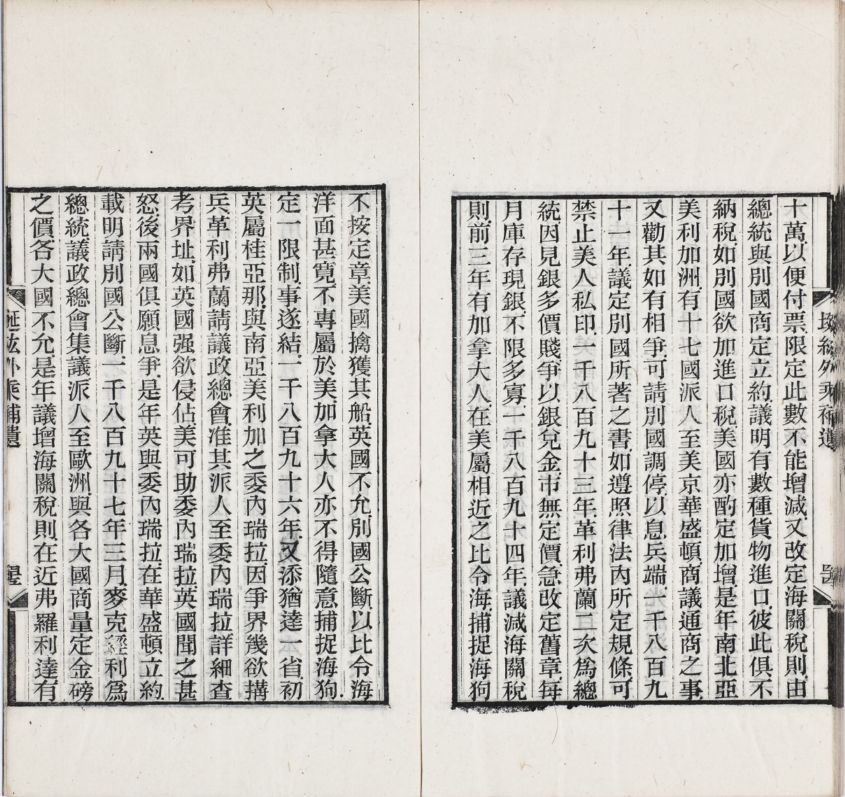 十萬以便付票限定此數不能增減又改定海關稅則由
總統與別國商定立約議明有數種貨物進口彼此俱不
納稅如別國欲加進口稅美國亦酌定加增是年南北亞
美利加洲有十七國派人至美京華盛頓商議通商之事
又勸其如有相爭可請別國調停以息兵端一千八百九
十一年議定別國所著之書如遵照律法內所定規條可
禁止美人私印一千八百九十三年革利弗蘭二次爲總
統因見銀多價賤爭以銀兌金市無定價急改定舊章每
月庫存現銀不限多寡一千八百九十四年議減海關稅
則前三年有加拿大人在美屬相近之比令海捕捉海狗
不按定章美國擒獲其船英國不允別國公斷以比令海
洋面甚寬不專屬於美加拿大人亦不得隨意捕捉海狗
定一限制事遂結一千八百九十六年又添猶達一省初
英屬桂亞那與南亞美利加之委內瑞拉因爭界幾欲搆
兵革利弗蘭請議政總會准其派人至委內瑞拉詳細查
考界址如英國强欲侵佔美可助委內瑞拉英國聞之甚
怒後兩國俱願息爭是年英與委內瑞拉在華盛頓立約
載明請別國公斷一千八百九十七年三月麥克利爲
總統議政總會集議派人至歐洲與各大國商量定金磅
之價各大國不允是年議增海關稅則在近弗羅利達有